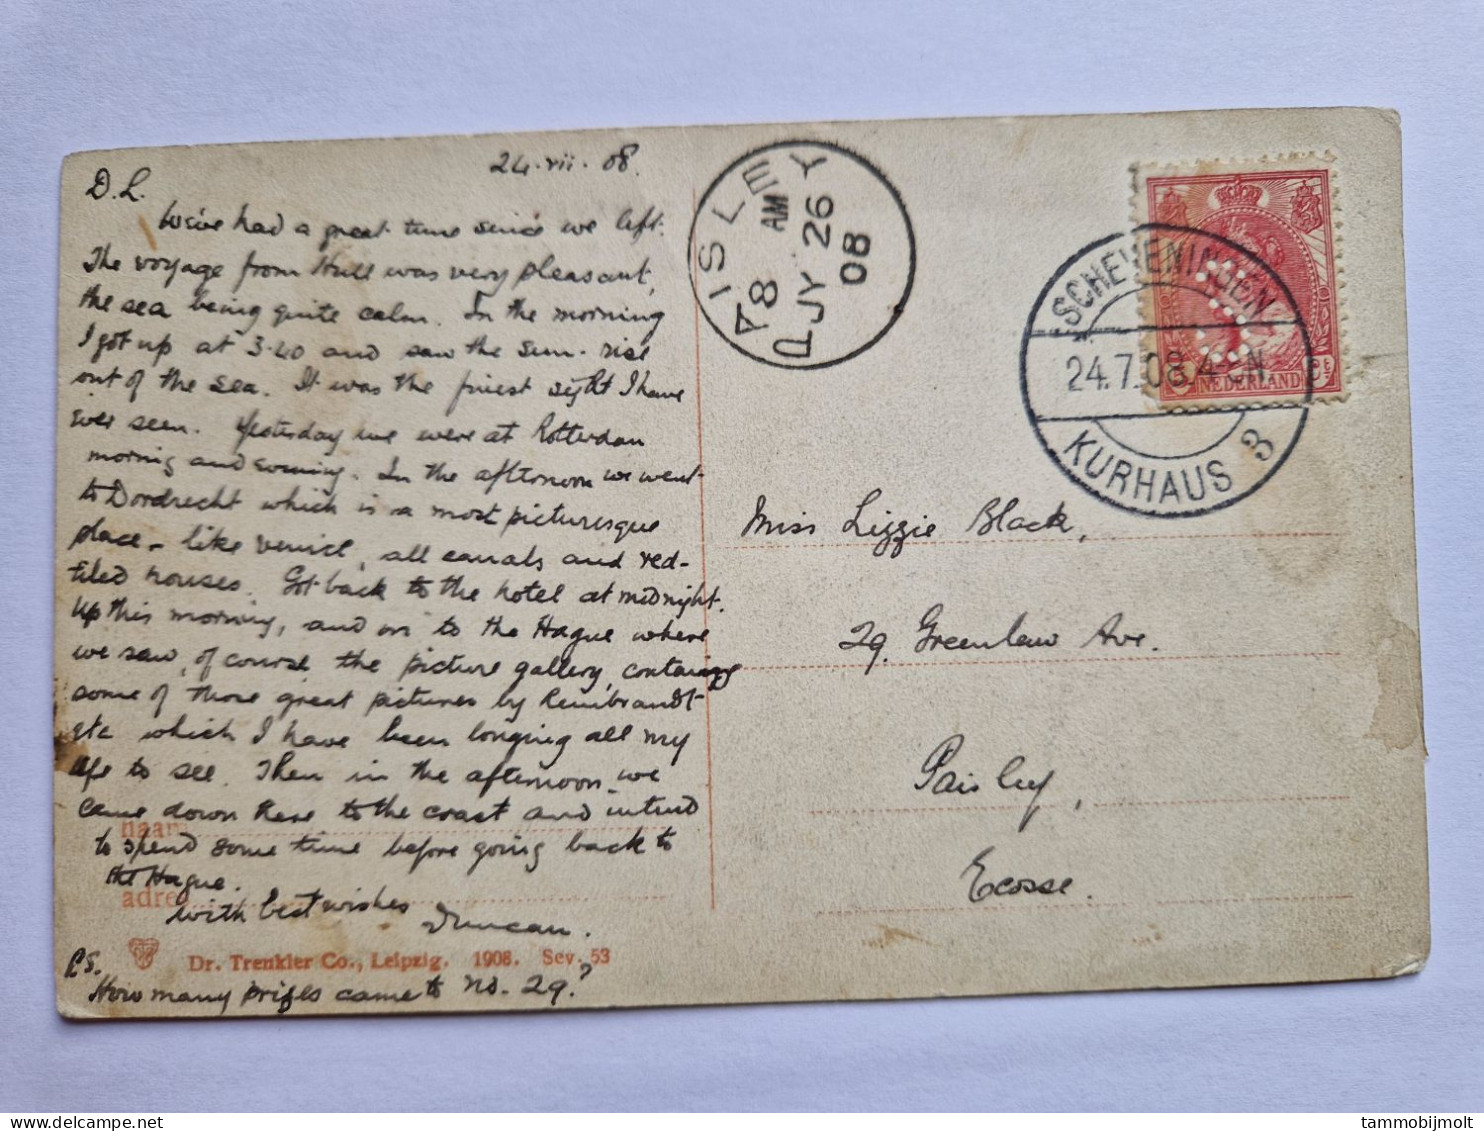 24.vii.08.
D.L.
We've had a great time since we left.
The voyage from Hull was very pleasant,
the sea being quite calm. In the morning
I got up at 3.40 and saw the sun-rise
out of the sea. It was the finest sight I have
ever seen. Yesterday we were at Rotterdam
morning and evening. In the afternoon we went
to Dordrecht which is a most picturesque
place - like Venice, all canals and red-
tiled houses. Got back to the hotel at midnight.
Up this morning, and on to the Hague where
we saw, of course, the picture gallery, containing
some of those great pictures by Rembrandt
etc which I have been longing all my
life to see. Then in the afternoon we
came down here to the coast and intend
to spend some time before going back to
the Hague.
With best wishes
Duncan.
P.S.
How many prizes came to no. 29?
naar
adres
Dr. Trenkler Co., Leipzig. 1908. Sev. 53
PAISLEY
8 AM
JY 26
08
SCHEVENINGEN
24.7.08 4-
KURHAUS 3
NEDERLAND
Miss Lizzie Black,
29. Greenlaw Ave.
Paisley,
Ecosse.
tammobijmolt